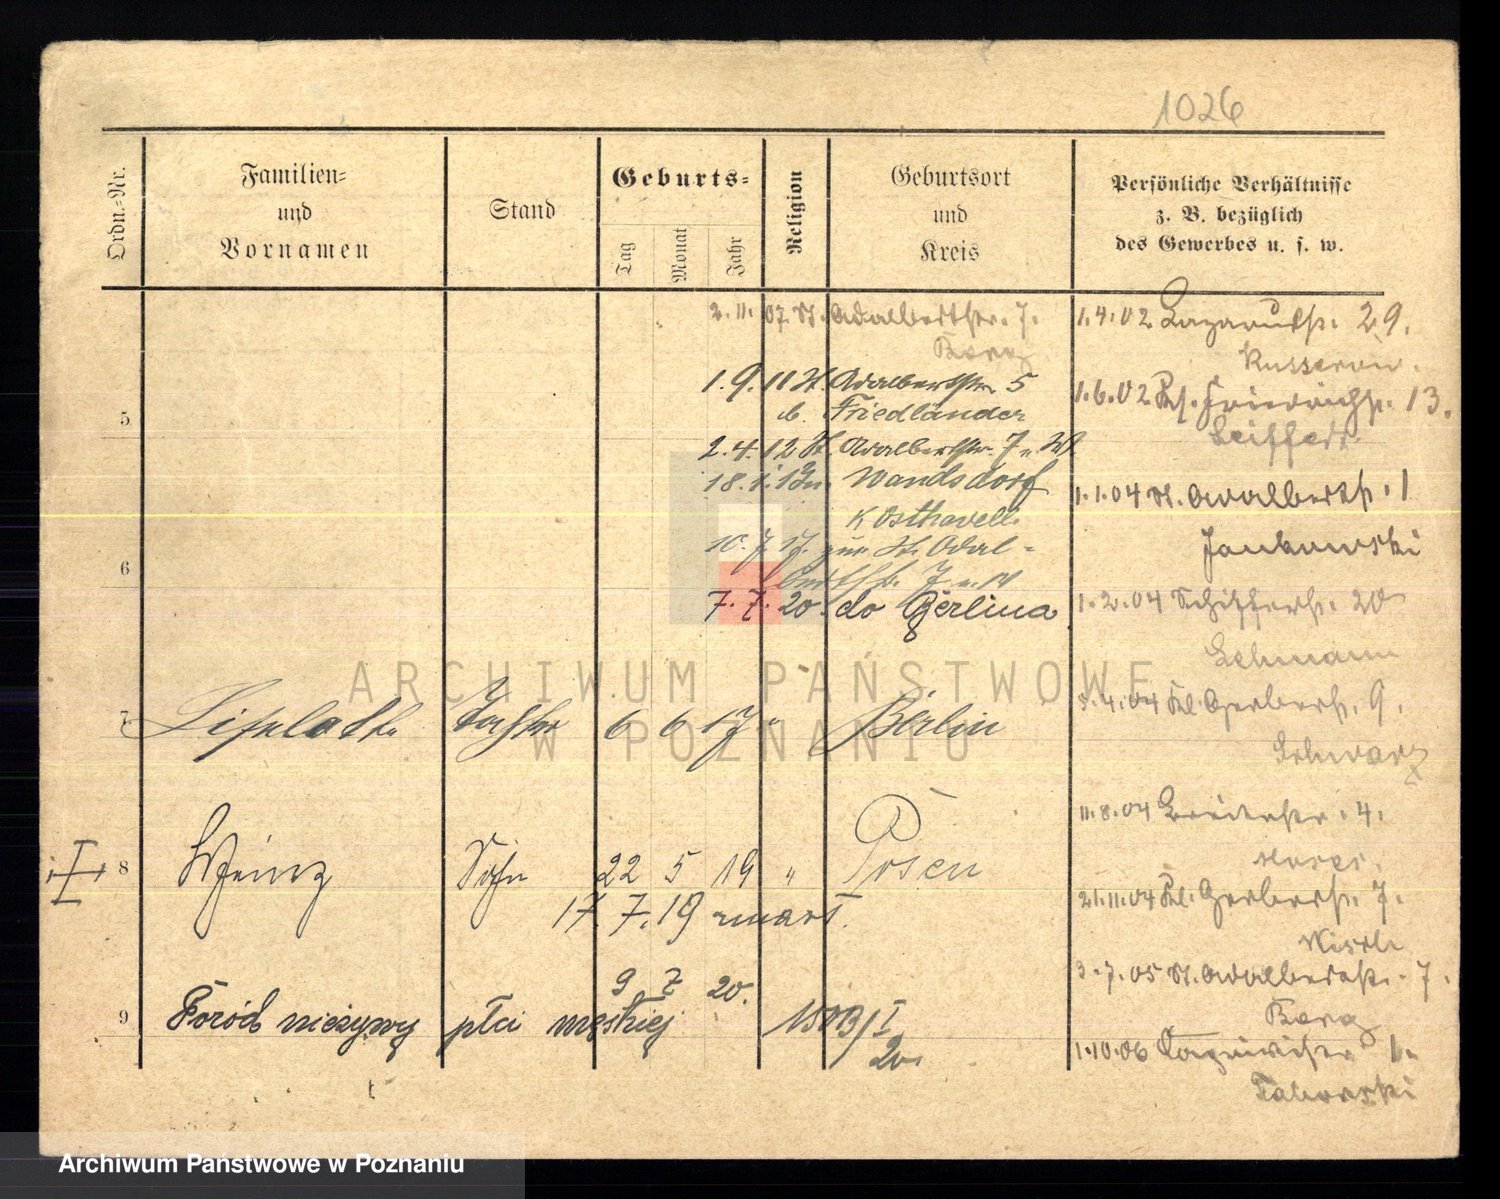 1026
Ordn.-Nr.
Familien-
und
Vornamen
Stand
Geburts-
Tag
Monat
Jahr
Religion
Geburtsort
und
Kreis
Persönliche Verhältnisse
z. B. bezüglich
des Gewerbes u. s. w.
2. 11. 07 St. Adalbertstr. 7.
Berg
1. 9. 11 St. Adalbertstr. 5
b. Friedländer
2. 4. 12 St. Adalbertstr. 7 u. W
18. 1. 13 n. Wandsdorf
K Osthavell.
10. 7. 17. zur. St. Adal-
bertstr. 7 u. W
7. 7. 20. do Berlina
5
6
7 Liselotte Tochter 6 6 17 " Berlin
8 Heinz Sohn 22 5 19 " Posen
17. 7. 19 mart.
9 7 20.
9 Poród nieżywy płci męskiej 1503/I
20.
1. 4. 02 Lazarusstr. 29.
1. 6. 02 Friedrichstr. 13.
Seiffert.
1. 1. 04 St. Adalbertstr. 1
Jankowski
1. 2. 04 Schifferstr. 20
Lehmann
5. 4. 04 Kl. Gerberstr. 9.
Schwarz
11. 8. 04 Breitestr. 4.
21. 11. 04 Kl. Gerberstr. 7.
3. 7. 05 St. Adalbertstr. 7.
Berg
1. 10. 06
Taborski
ARCHIWUM PAŃSTWOWE
W POZNANIU
Archiwum Państwowe w Poznaniu